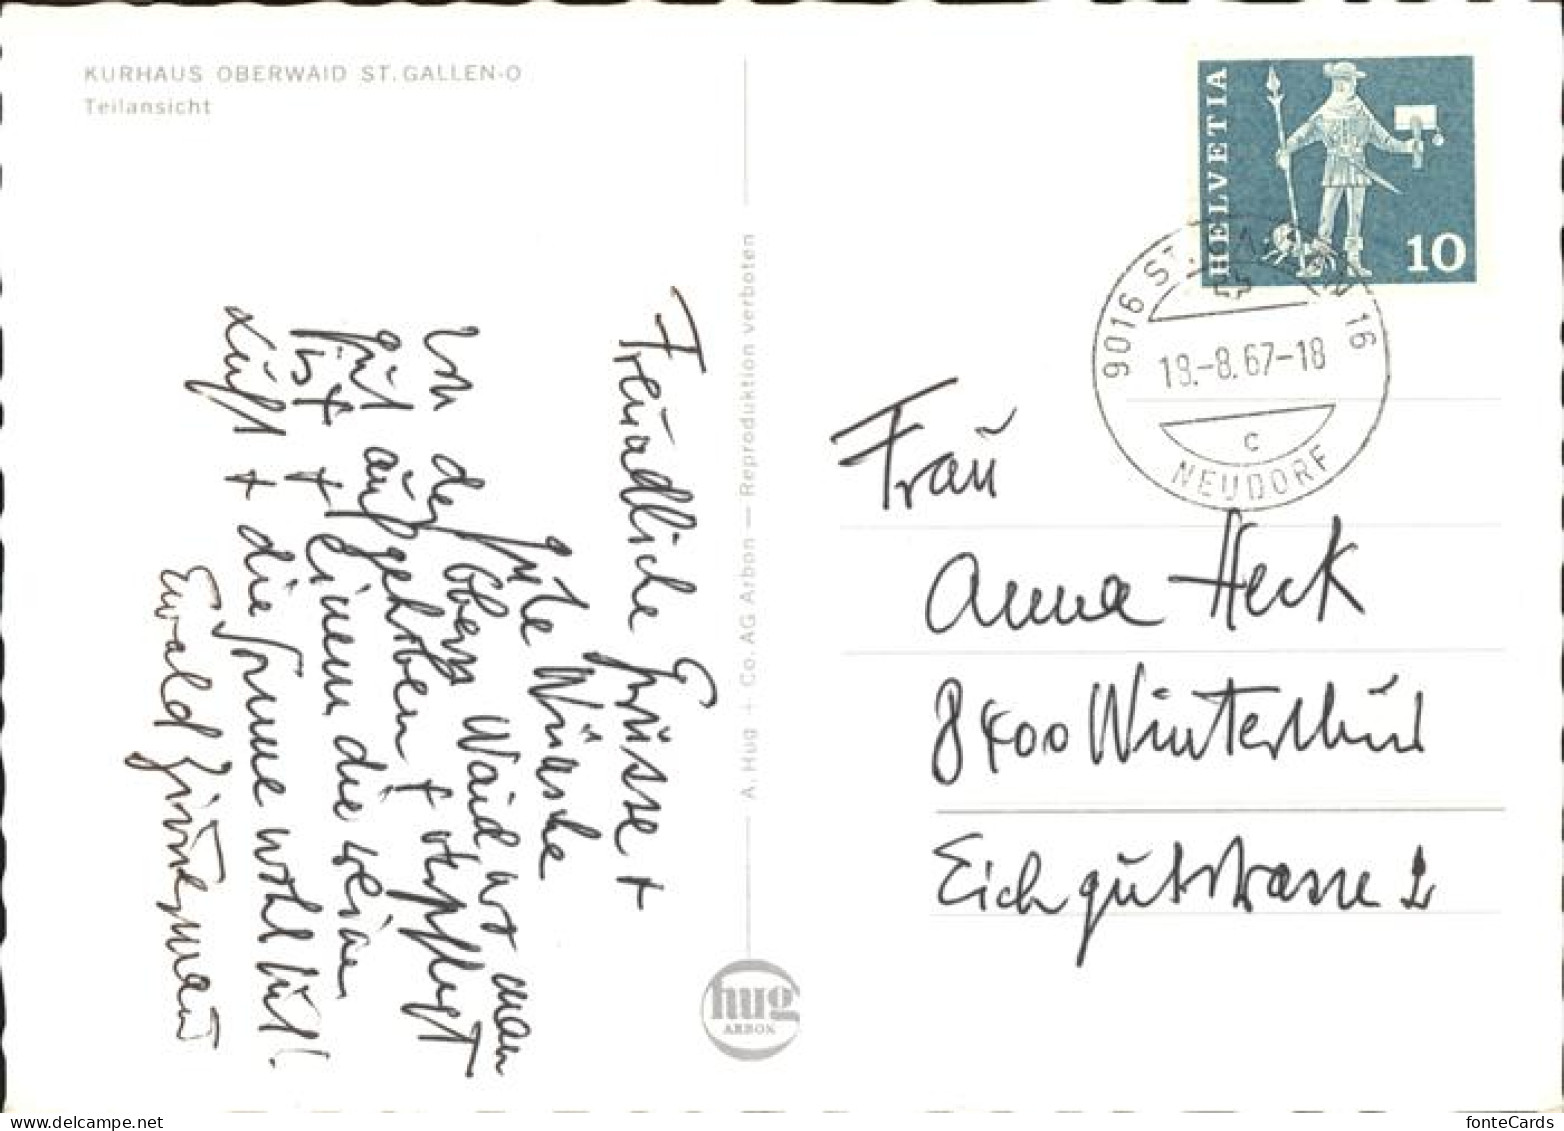 KURHAUS OBERWAID ST. GALLEN-O
Teilansicht
HELVETIA
10
9016 ST. GALLEN 16
18.-8.67-18
C
NEUDORF
Freundliche Grüsse +
gute Wünsche
In der Obern Waid, wo man
gut aufgehoben + verpflegt
ist + einem die reine
Luft + die Sonne wohl tut!
Ewald
Frau
Anna Heck
8400 Winterthur
Eichgutstrasse 2
A. Hug + Co. AG Arbon — Reproduktion verboten
hug
ARBON
delcampe.net
fonteCards